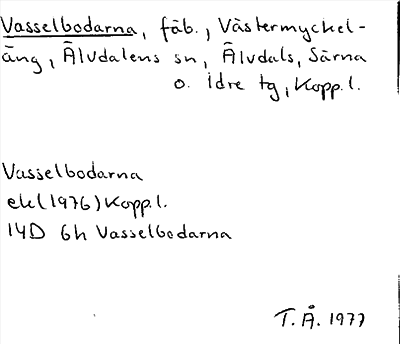 Vasselbodarna, fäb., Västermyckel-
äng, Älvdalens sn, Älvdals, Särna
o. Idre tg, Kopp.l.
Vasselbodarna
ek(1976) Kopp.l.
14D 6h Vasselbodarna
T.Å. 1977